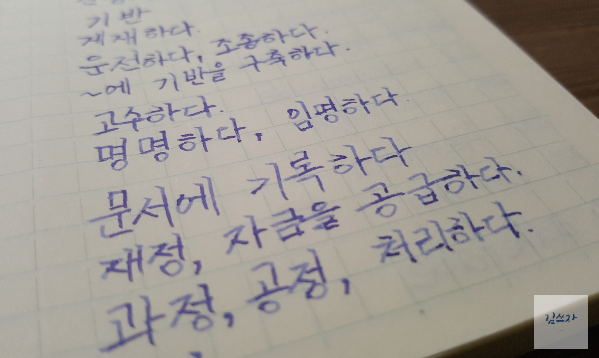 기반
게재하다.
운전하다, 조종하다.
~에 기반을 구축하다.
고수하다.
명명하다, 임명하다.
문서에 기록하다
재정, 자금을 공급하다.
과정, 공정, 처리하다.
김쓰자